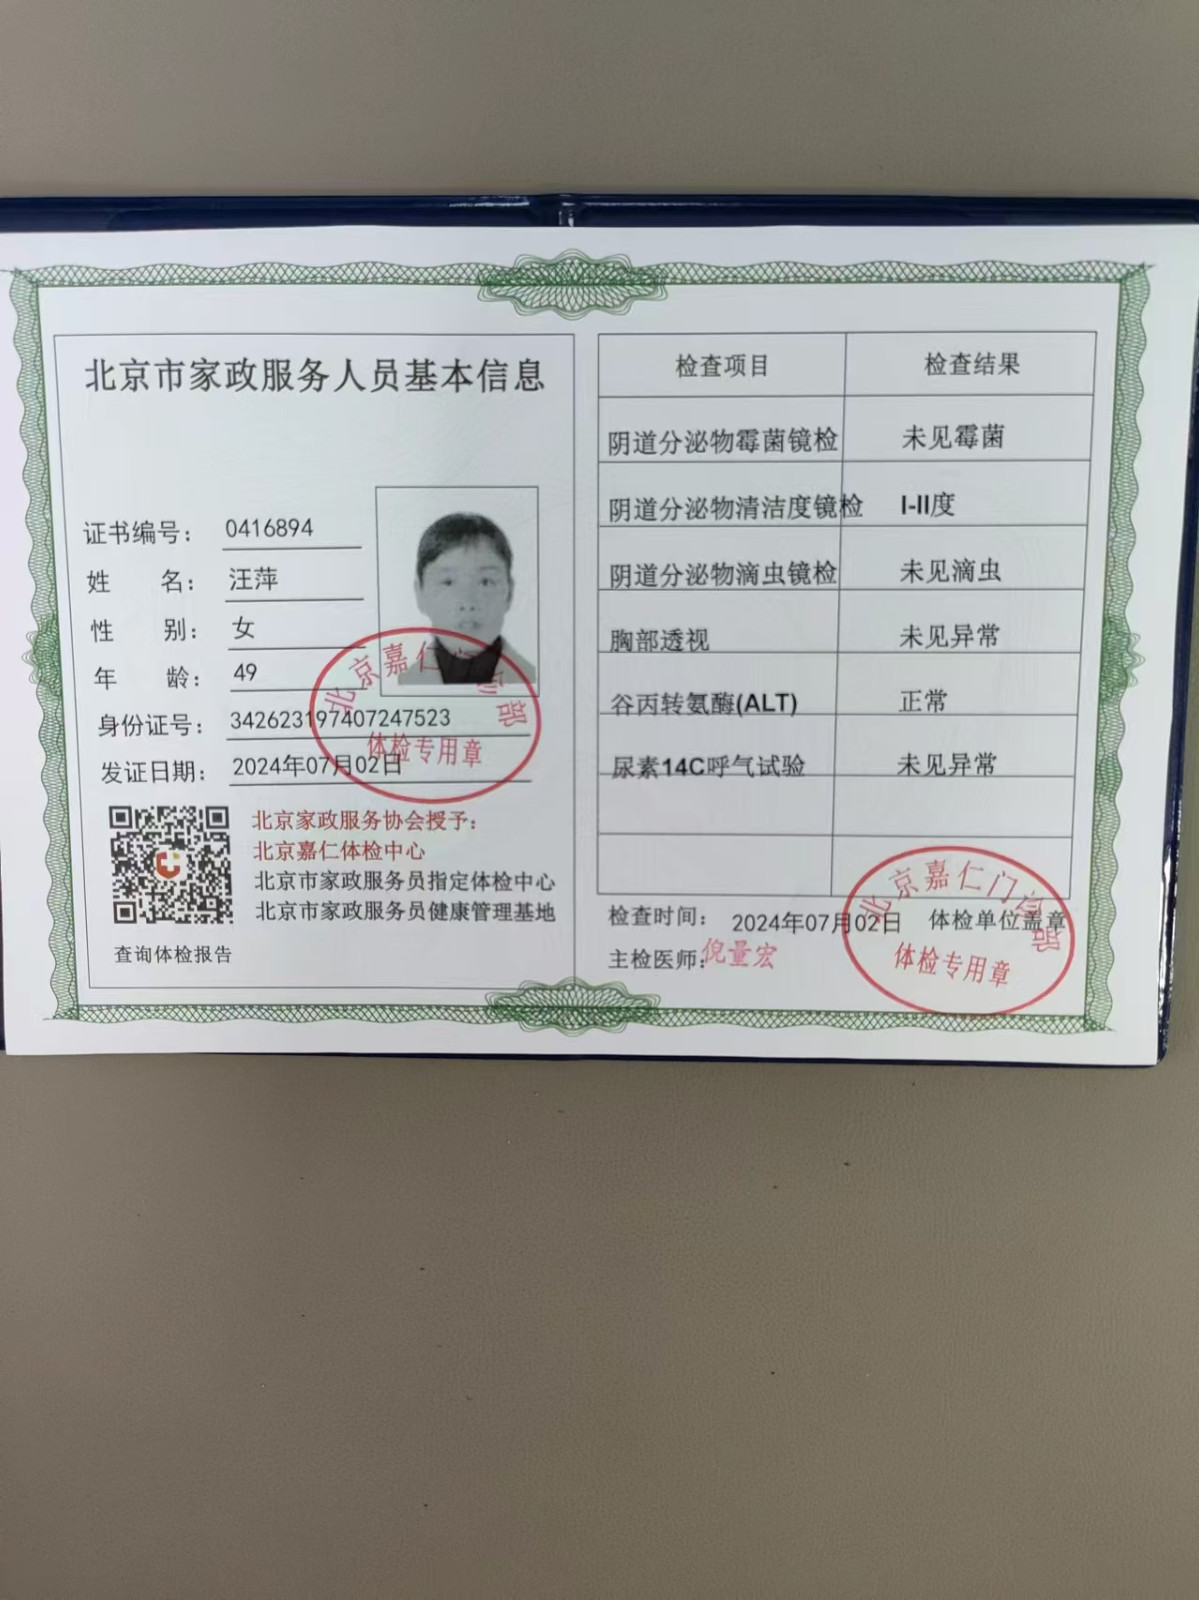 北京市家政服务人员基本信息
证书编号： 0416894
姓 名： 汪萍
性 别： 女
年 龄： 49
身份证号： 342623197407247523
发证日期： 2024年07月02日
北京嘉仁门诊部
体检专用章
北京家政服务协会授予：
北京嘉仁体检中心
北京市家政服务员指定体检中心
北京市家政服务员健康管理基地
查询体检报告
检查项目 检查结果
阴道分泌物霉菌镜检 未见霉菌
阴道分泌物清洁度镜检 I-II度
阴道分泌物滴虫镜检 未见滴虫
胸部透视 未见异常
谷丙转氨酶(ALT) 正常
尿素14C呼气试验 未见异常
检查时间： 2024年07月02日 体检单位盖章
主检医师： 倪量宏
北京嘉仁门诊部
体检专用章